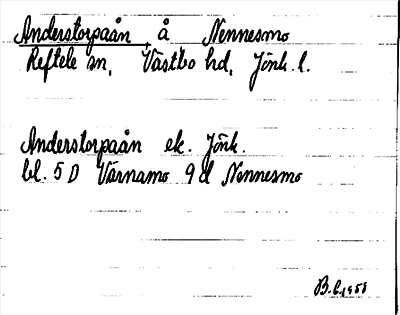 Anderstorpaån, å Nennesmo
Reftele sn, Västbo hd, Jönk. l.
Anderstorpaån ek. Jönk.
bl. 5 D Värnamo 9 d Nennesmo